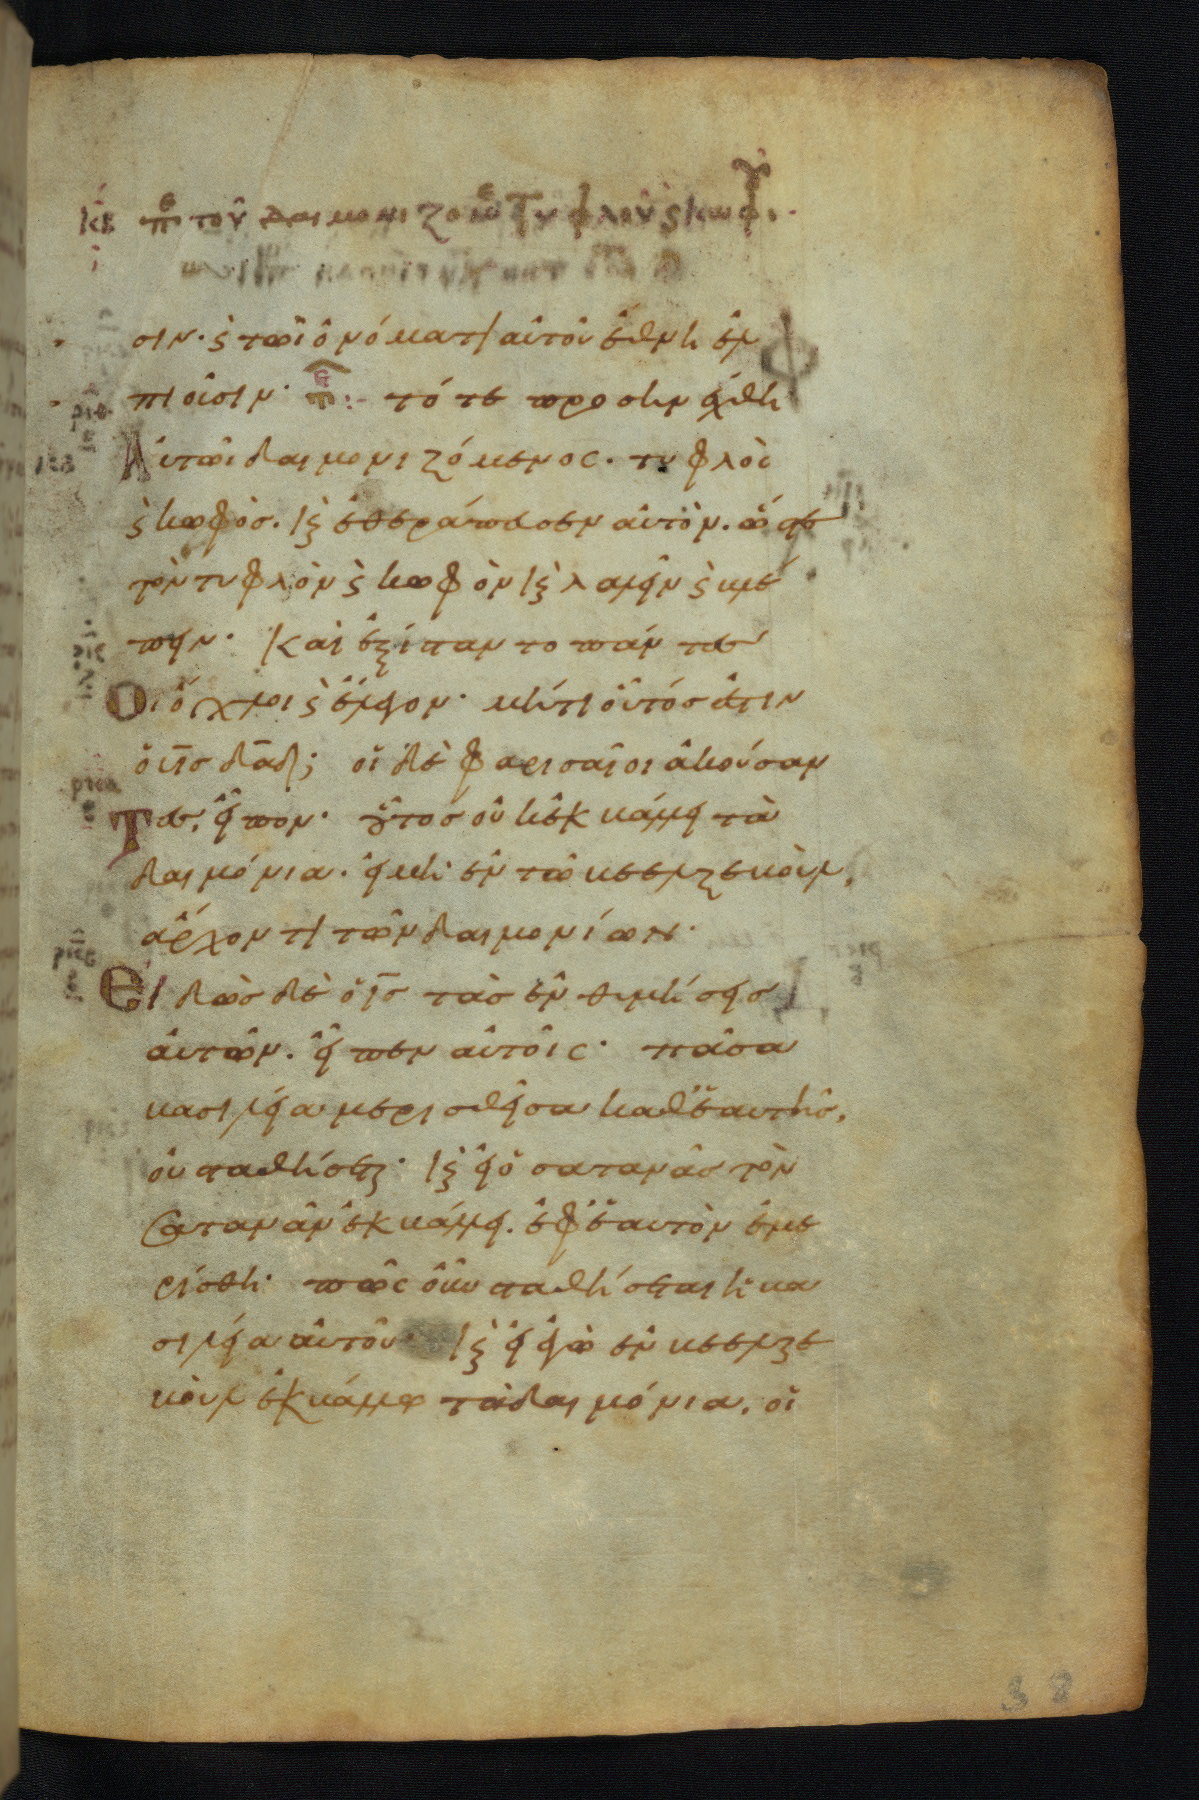 κβ περὶ τοῦ δαιμονιζομένου τυφλοῦ ϗ κωφοῦ
σιν· ϗ τῶι ὀνόματι αὐτοῦ ἔθνη ἐλ
πιοῦσιν· τότε προσηνέχθη
Αὐτῶι δαιμονιζόμενος· τυφλὸς
ϗ κωφὸσ. ϗ ἐθεράπευσεν αὐτὸν. ὥστε
τὸν τυφλὸν ϗ κωφὸν ϗ λαλεῖν ϗ βλέ
πειν· Καὶ ἐξίσταντο πάντες
Οἱ ὄχλοι ϗ ἔλεγον· μήτι οὗτόσ ἐστιν
ὁ ι̅σ̅ δα̅δ̅; οἱ δὲ φαρισαῖοι ἀκούσαν
Τεσ, εἶπον· οὗτοσ οὐκ ἐκβάλλει τὰ
δαιμόνια. εἰ μὴ ἐν τῶ βεελζεβοὺλ,
ἄρχοντι τῶν δαιμονίων·
Εἰδὼσ δὲ ὁ ι̅σ̅ τὰσ ἐνθυμήσεισ
αὐτῶν. εἶπεν αὐτοῖς· πᾶσα
βασιλεία μερισθεῖσα καθ' ἑαυτῆσ,
οὐ σταθήσεται· ϗ εἰ ὁ σατανᾶσ τὸν
Σατανᾶν ἐκβάλλει. ἐφ' ἑαυτὸν ἐμε
ρίσθη· πῶς οὖν σταθήσεται ἡ βα
σιλεία αὐτοῦ· ϗ εἰ ἐγὼ ἐν βεελζε
βοὺλ ἐκβάλλω τὰ δαιμόνια. οἱ
38